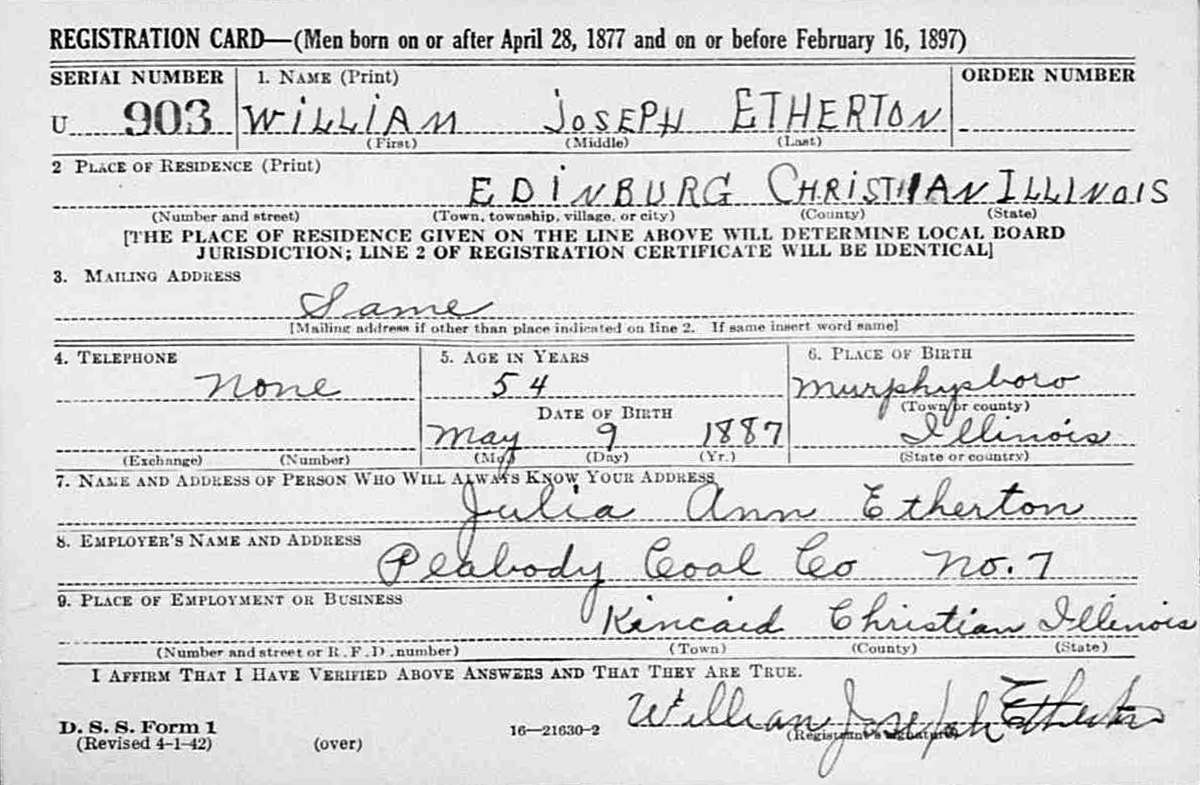 REGISTRATION CARD—(Men born on or after April 28, 1877 and on or before February 16, 1897)
SERIAL NUMBER 1. NAME (Print) ORDER NUMBER
U 903 WILLIAM JOSEPH ETHERTON
(First) (Middle) (Last)
2 PLACE OF RESIDENCE (Print)
EDINBURG CHRISTIAN ILLINOIS
(Number and street) (Town, township, village, or city) (County) (State)
[THE PLACE OF RESIDENCE GIVEN ON THE LINE ABOVE WILL DETERMINE LOCAL BOARD
JURISDICTION; LINE 2 OF REGISTRATION CERTIFICATE WILL BE IDENTICAL]
3. MAILING ADDRESS
Same
[Mailing address if other than place indicated on line 2. If same insert word same]
4. TELEPHONE 5. AGE IN YEARS 6. PLACE OF BIRTH
None 54 Murphysboro
DATE OF BIRTH (Town or county)
May 9 1887 Illinois
(Exchange) (Number) (Mo.) (Day) (Yr.) (State or country)
7. NAME AND ADDRESS OF PERSON WHO WILL ALWAYS KNOW YOUR ADDRESS
Julia Ann Etherton
8. EMPLOYER'S NAME AND ADDRESS
Peabody Coal Co No. 7
9. PLACE OF EMPLOYMENT OR BUSINESS
Kincaid Christian Illinois
(Number and street or R. F. D. number) (Town) (County) (State)
I AFFIRM THAT I HAVE VERIFIED ABOVE ANSWERS AND THAT THEY ARE TRUE.
William Joseph Etherton
D. S. S. Form 1
(Revised 4-1-42) (over) 16—21630-2 (Registrant's signature)